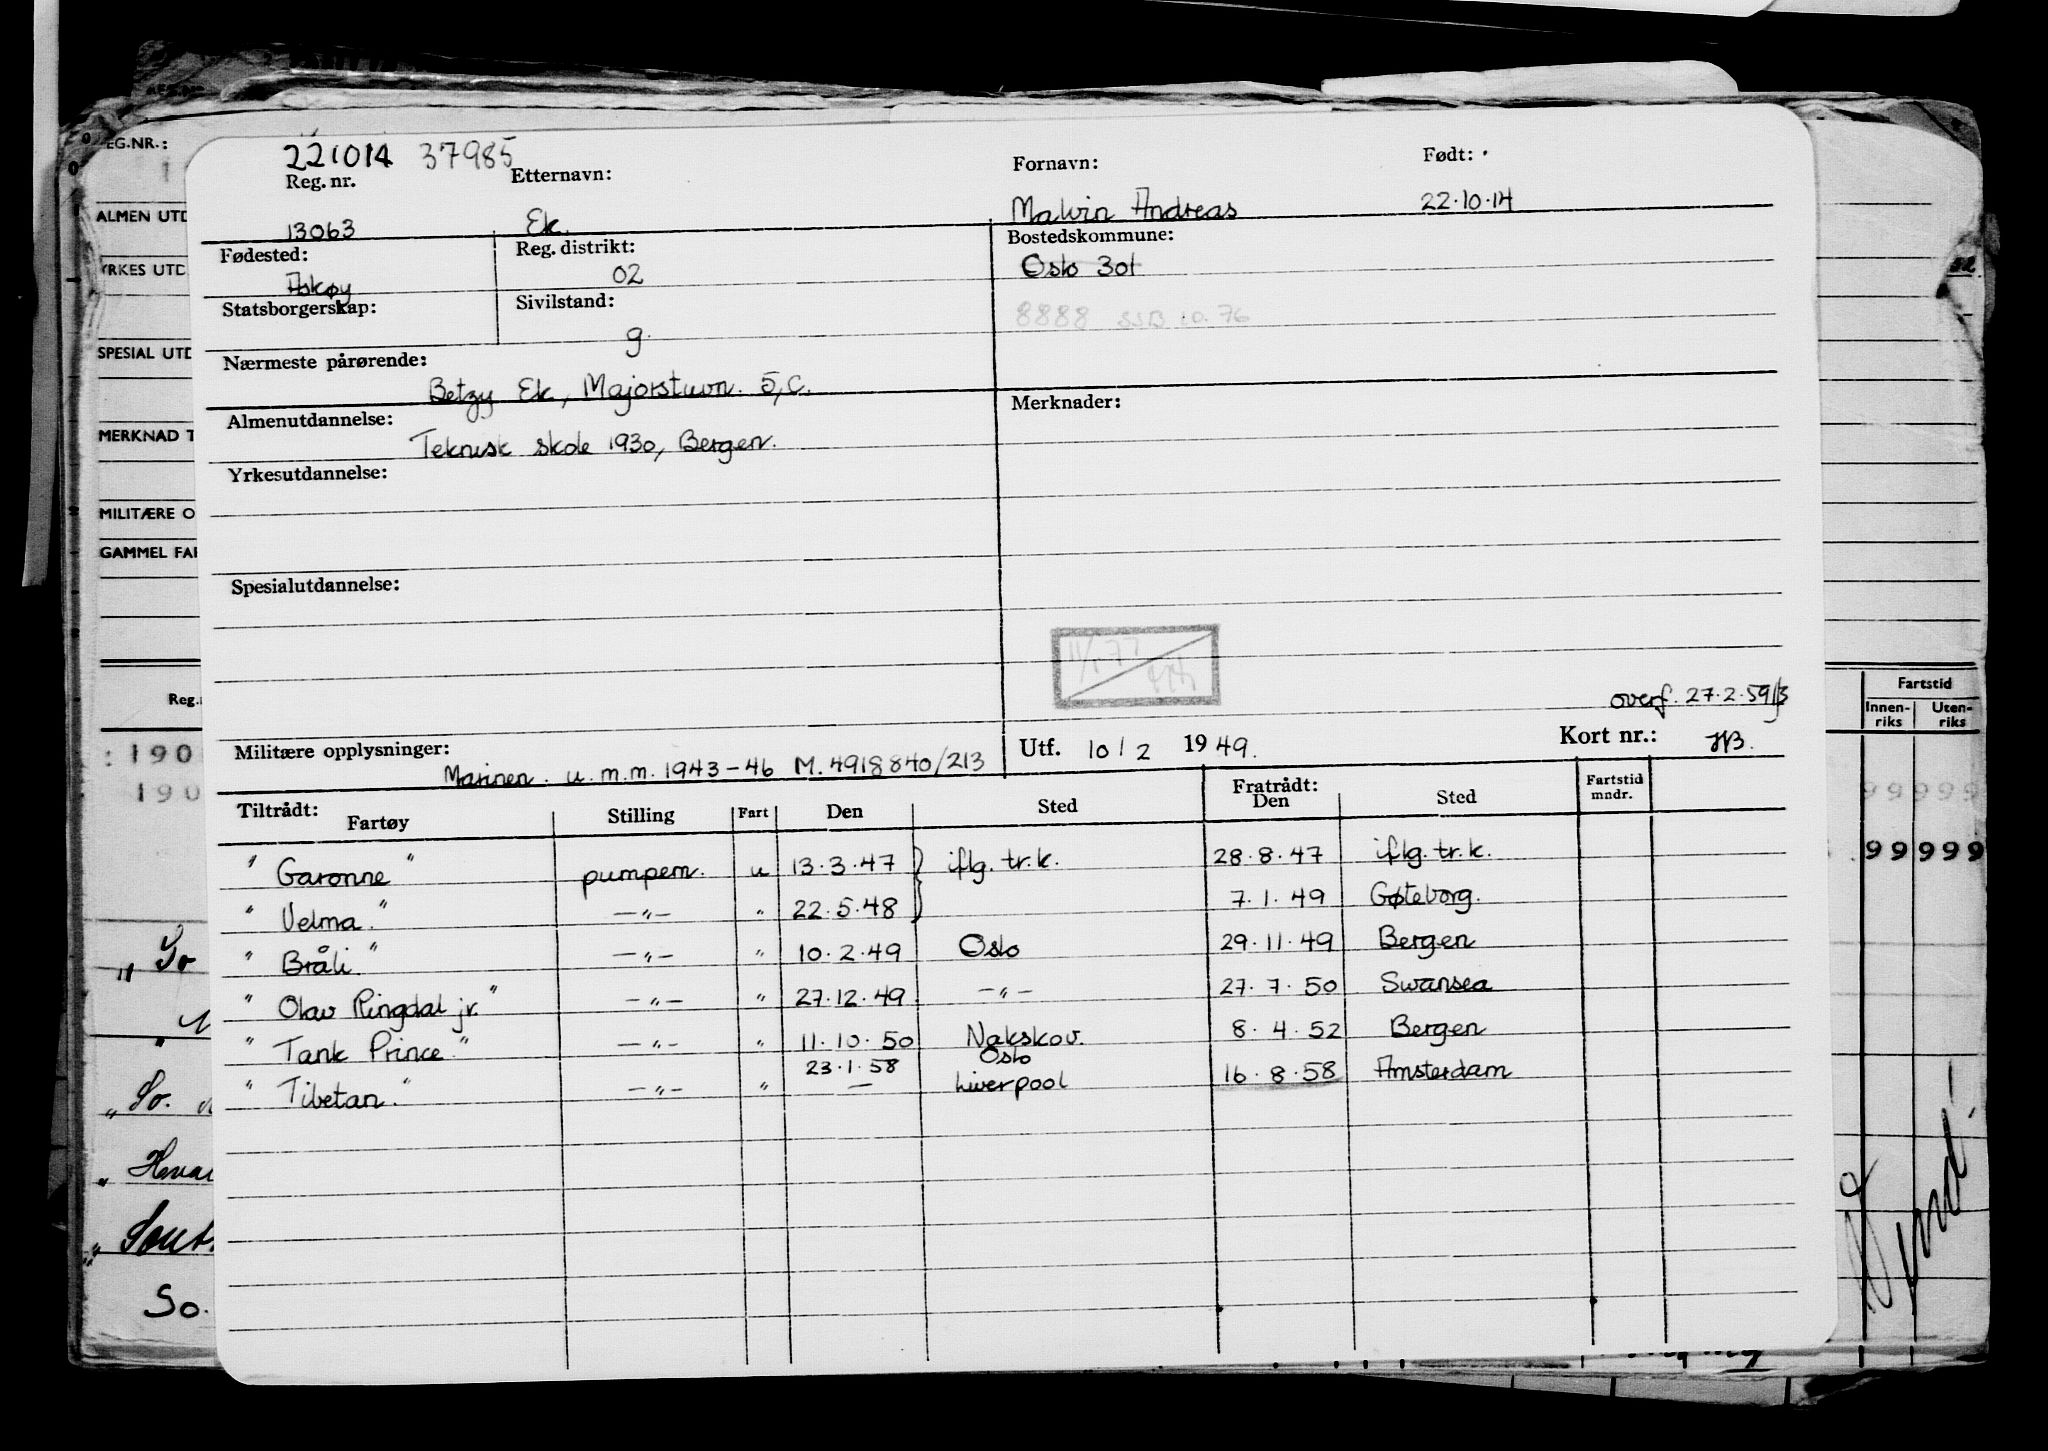 221014 37985
Reg. nr. Etternavn: Fornavn: Født:
13063 Ek. Malvin Andreas 22.10.14
Fødested: Reg. distrikt: Bostedskommune:
Askøy 02 Oslo 301
Statsborgerskap: Sivilstand:
g. 8888 SSB 10.76
Nærmeste pårørende:
Betzy Ek, Majorstuvn. 5, C.
Almenutdannelse: Merknader:
Teknisk skole 1930, Bergen.
Yrkesutdannelse:
Spesialutdannelse:
11/1 77
overf. 27.2.59
Militære opplysninger: Utf. 10/2 1949. Kort nr.: HB.
Marinen. u.m.m. 1943-46 M. 4918840/213
Tiltrådt: Fratrådt: Fartstid mndr.
Fartøy Stilling Fart Den Sted Den Sted
" Garonne " pumpem. u 13.3.47 } iflg. tr.k. 28.8.47 iflg. tr.k.
" Velma " —"— " 22.5.48 7.1.49 Gøteborg.
" Bråli " —"— " 10.2.49 Oslo 29.11.49 Bergen
" Olav Ringdal jr. " —"— " 27.12.49 —"— 27.7.50 Swansea
" Tank Prince " —"— " 11.10.50 Nakskov. 8.4.52 Bergen
23.1.58 Oslo
" Tibetan " —"— " — Liverpool 16.8.58 Amsterdam
EG.NR.:
ALMEN UTD
YRKES UTD
SPESIAL UTD
MERKNAD T
MILITÆRE O
GAMMEL FAR
Reg.
: 190
190
Fartstid
Innen-riks Uten-riks
99999
99999